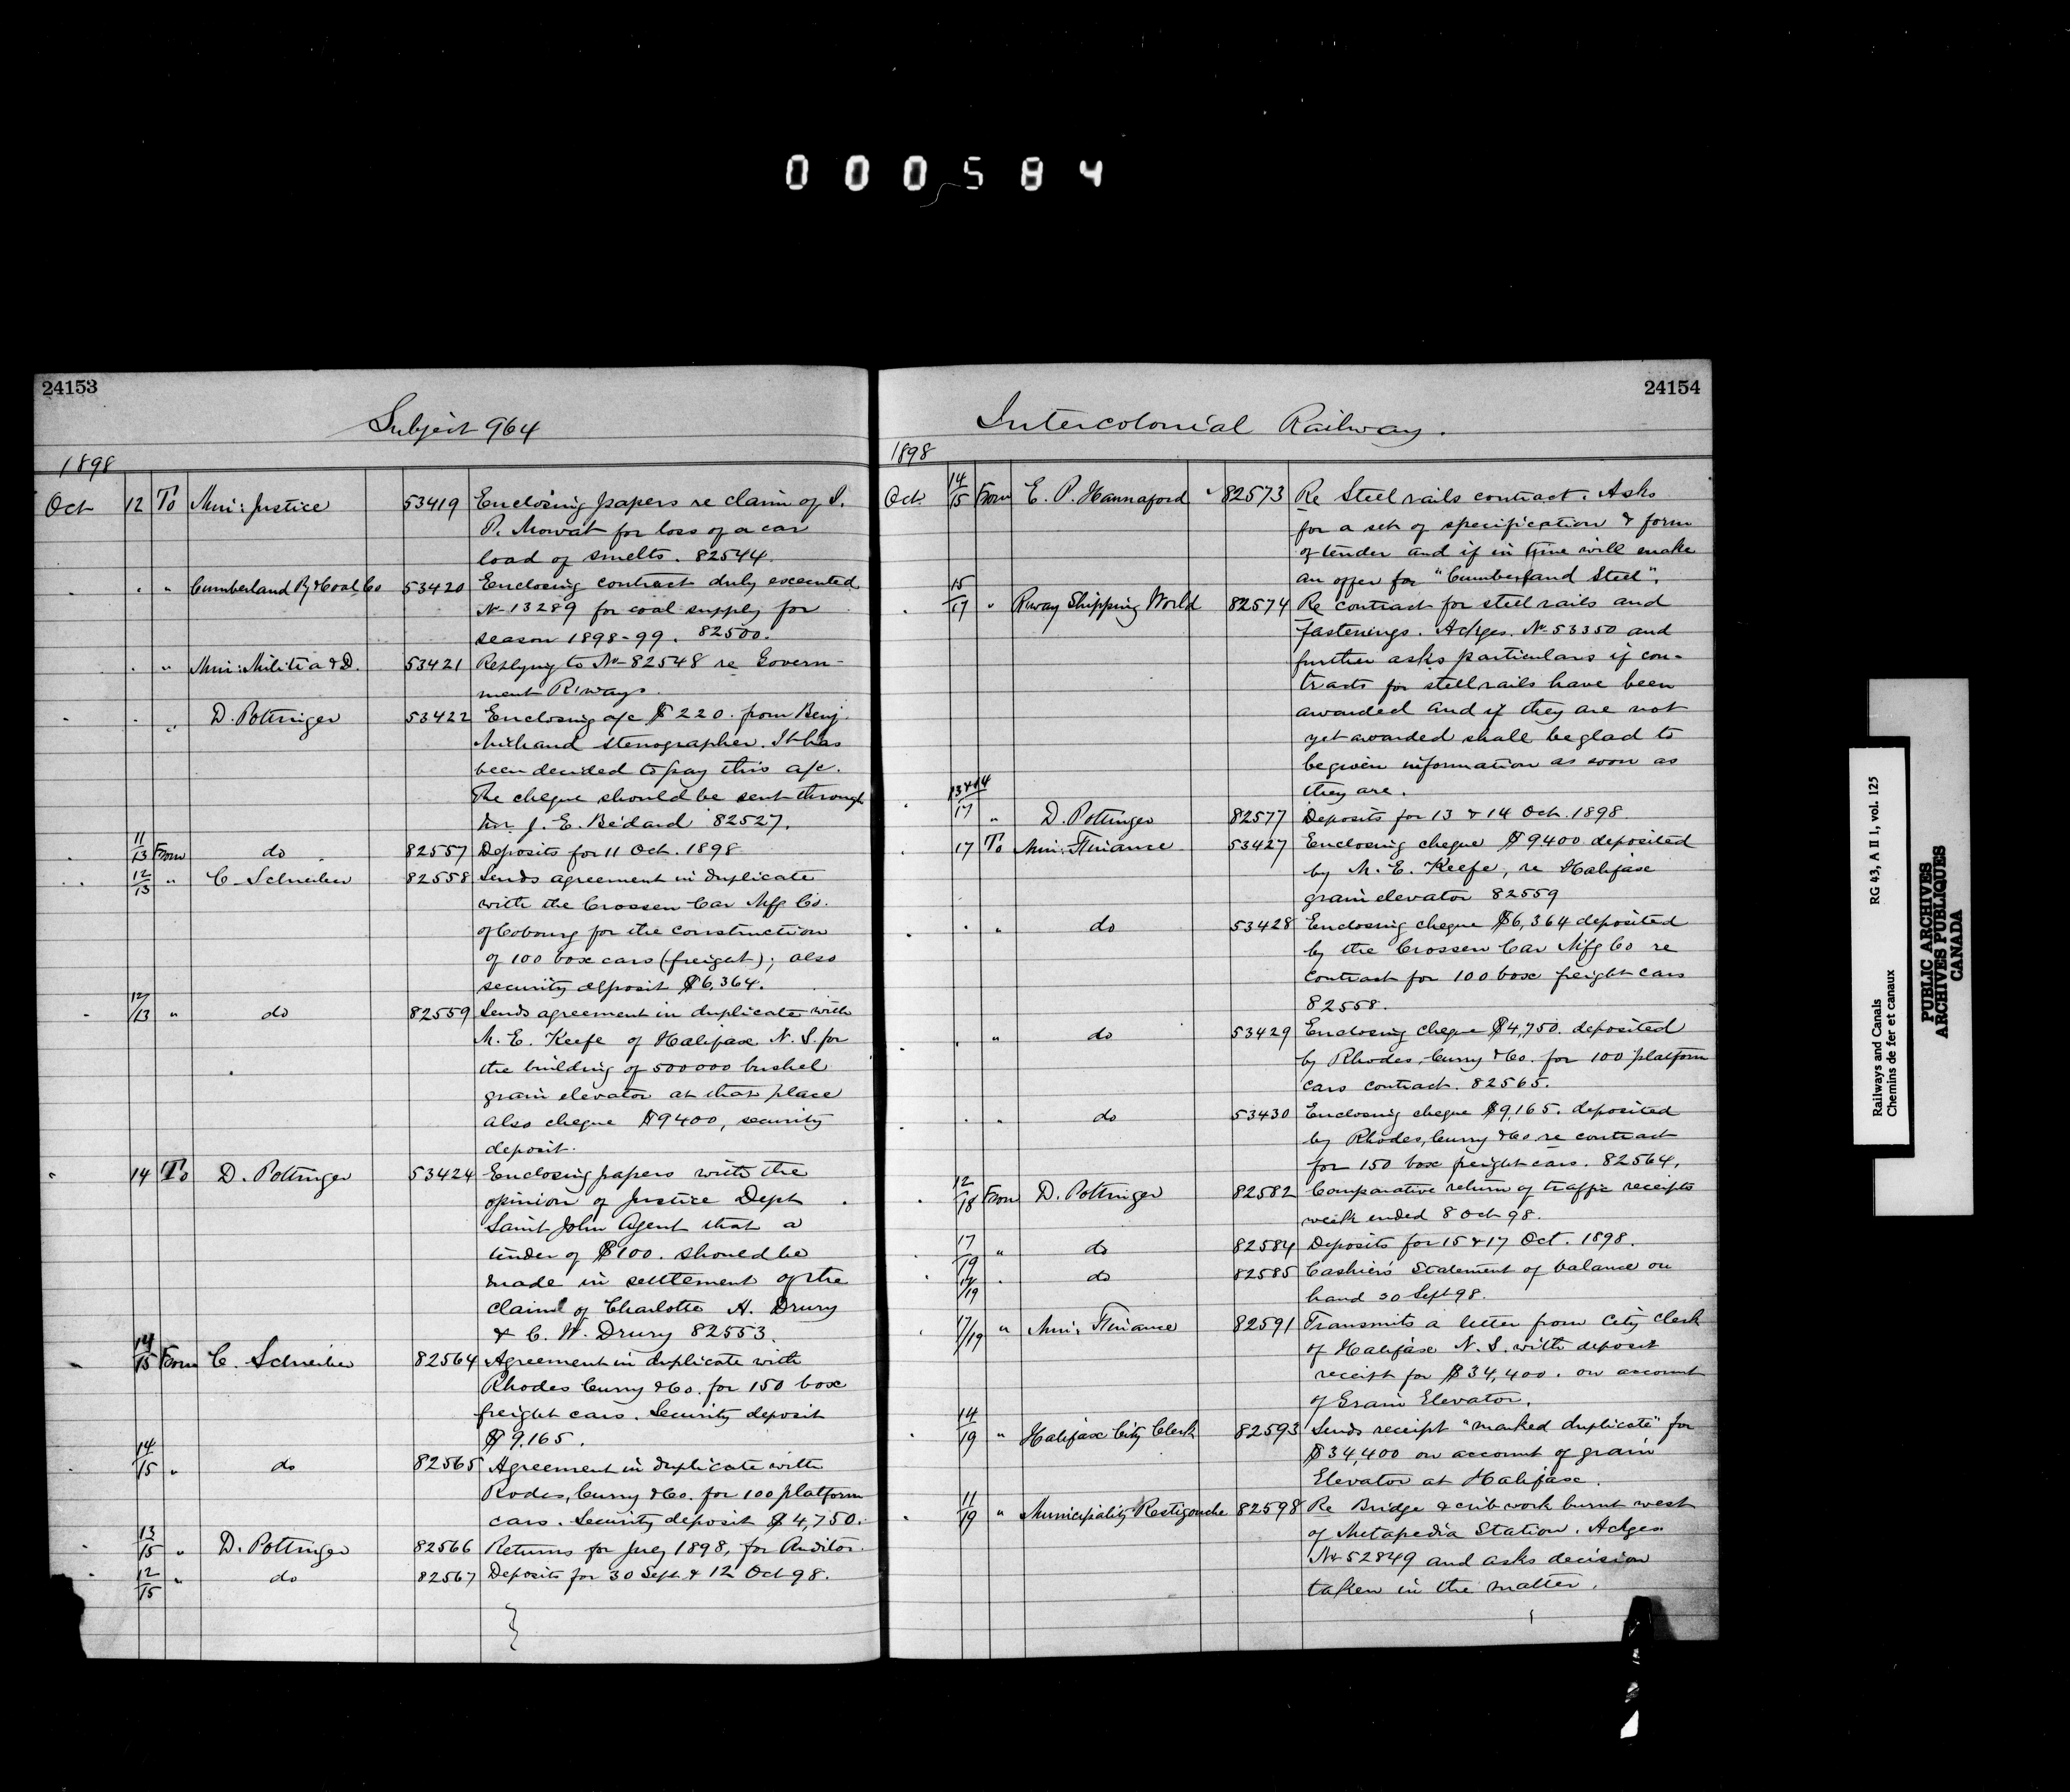 000584
24153
Subject 964
1898
Oct 12 To Min: Justice 53419 Enclosing papers re claim of S.
P. Mowat for loss of a car
load of smelts. 82544.
" " " Cumberland Ry & Coal Co 53420 Enclosing contract duly executed
No 13289 for coal supply for
season 1898-99. 82500.
" " Min: Militia & D. 53421 Replying to No 82548 re Govern-
ment R'ways.
" " " D. Pottinger 53422 Enclosing a/c $220. from Benj.
Michaud stenographer. It has
been decided to pay this a/c.
The cheque should be sent through
Mr. J. E. Bédard 82527.
" 11/13 From do 82557 Deposits for 11 Oct. 1898
" 12/13 " C. Schreiber 82558 Sends agreement in duplicate
with the Crossen Car Mfg Co.
of Cobourg for the construction
of 100 box cars (freight); also
security deposit $6,364.
" 12/13 " do 82559 Sends agreement in duplicate with
M. E. Keefe of Halifax N. S. for
the building of 500000 bushel
grain elevator at that place
also cheque $9400, security
deposit.
" 14 To D. Pottinger 53424 Enclosing papers with the
opinion of Justice Dept
Saint John Agent that a
tender of $100. should be
made in settlement of the
claim of Charlotte A. Drury
& C. W. Drury 82553.
" 14/15 From C. Schreiber 82564 Agreement in duplicate with
Rhodes Curry & Co. for 150 box
freight cars. Security deposit
$9,165.
" 14/15 " do 82565 Agreement in duplicate with
Rodes, Curry & Co. for 100 platform
cars. Security deposit $4,750.
" 13/15 " D. Pottinger 82566 Returns for July 1898, for Auditor
" 12/15 " do 82567 Deposits for 30 Sept. & 12 Oct 98.
24154
Intercolonial Railway.
1898
Oct. 14/15 From E. P. Hannaford 82573 Re Steel rails contract. Asks
for a set of specification & form
of tender and if in time will make
an offer for "Cumberland Steel".
" 15/17 " R'way Shipping World 82574 Re contract for steel rails and
fastenings. Ackges. No 53350 and
further asks particulars if con-
tracts for steel rails have been
awarded and if they are not
yet awarded shall be glad to
be given information as soon as
they are.
" 13+14/17 " D. Pottinger 82577 Deposits for 13 & 14 Oct. 1898.
" 17 To Min: Finance 53427 Enclosing cheque $9400 deposited
by M. E. Keefe, re Halifax
grain elevator 82559
" " " do 53428 Enclosing cheque $6,364 deposited
by the Crossen Car Mfg Co re
contract for 100 box freight cars
82558.
" " " do 53429 Enclosing cheque $4,750. deposited
by Rhodes, Curry & Co. for 100 platform
cars contract. 82565.
" " " do 53430 Enclosing cheque $9,165. deposited
by Rhodes, Curry & Co re contract
for 150 box freight cars. 82564.
" 12/18 From D. Pottinger 82582 Comparative return of traffic receipts
week ended 8 Oct 98.
" 17/19 " do 82584 Deposits for 15 & 17 Oct. 1898.
" 14/19 " do 82585 Cashier's Statement of balance on
hand 30 Sept 98.
" 17/19 " Min: Finance 82591 Transmits a letter from City Clerk
of Halifax N. S. with deposit
receipt for $34,400. on account
of Grain Elevator.
" 14/19 " Halifax City Clerk 82593 Sends receipt "marked duplicate" for
$34,400 on account of grain
Elevator at Halifax.
" 11/19 " Municipality Restigouche 82598 Re Bridge & crib work burnt west
of Metapedia Station. Ackges
No 52849 and asks decision
taken in the matter.
Railways and Canals
Chemins de fer et canaux
RG 43, A II 1, vol. 125
PUBLIC ARCHIVES
ARCHIVES PUBLIQUES
CANADA